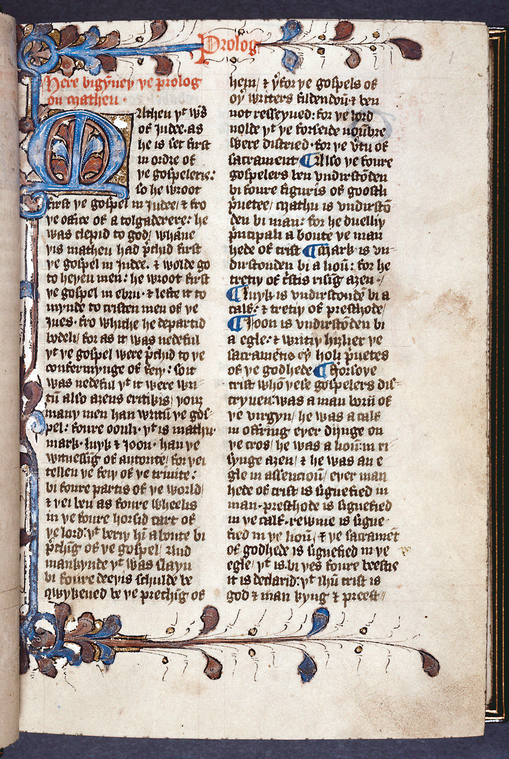 Prolog
Here bigynney ye prolog
on matheu.
Matheu yt was
of Judee. as
he is set first
in ordre of
ye gospeleris:
so he wroot
first ye gospel in Judee / & fro
ye office of a tolgaderere: he
was clepid to god / whāne
yis matheu had p̄chid first
ye gospel in Judee. & wolde go
to heyen men: he wroot first
ye gospel in ebru. & lefte it to
mynde to cristen men of ye
iues. fro whiche he departid
bodeli / for as it was nedeful
yt ye gospel were p̄chid to ye
confermynge of feiy: so it
was nedeful yt it were wri
tū also aȝens eritikis / youȝ
many men han writū ye gos
pel: foure oonli. yt is mathu
mark. luyk & Joon. han ye
witnessīg of autorite / for yei
tellen ye feiy of ye trinite:
bi foure partis of ye world /
& yei ben as foure wheelis
in ye foure horsid cart of
ye lord: yt beriy hī aboute bi
p̄chīg of ye gospel / And
mankynde yt was slayn
bi foure deeyis schulde be
qwykened bi ye prechīg of
hem / & yfor ye gospels of
oyer writers fildendoū & ben
not resseyued: for ye lord
nolde yt ye forseide noūbre
were distried. for ye vtu of
sacrament Also ye foure
gospelers ben vndirstōden
bi foure figuris of goostli
puetee / mathu is vndirstō
den bi man: for he duelliy
pncipali aboute ye man
hede of crist Mark is vn
dirstonden bi a lioū: for he
tretiy of cristis risīg aȝen.
Luyk is vndirstonde bi a
calf: & tretiy of presthode /
Joon is vndirstōden bi
a egle: & writiy hiȝlier ye
sacramētis eyer holi puetees
of ye godhede Forsoye
crist whō yese gospelers dis
cryuen: was a man borū of
ye virgyn / he was a calf
in offring eyer diynge on
ye cros / he was a lioū: in ri
synge aȝen / & he was an e
gle in ascencioū / eyer man
hede of crist is signefied in
man. presthode is signefied
in ye calf. rewme is signe
fied in ye lioū / & ye sacramēt
of godhede is signefied in ye
egle / yt is bi yes foure beestis
it is declarid: yt ihū crist is
god & man kyng & preest.